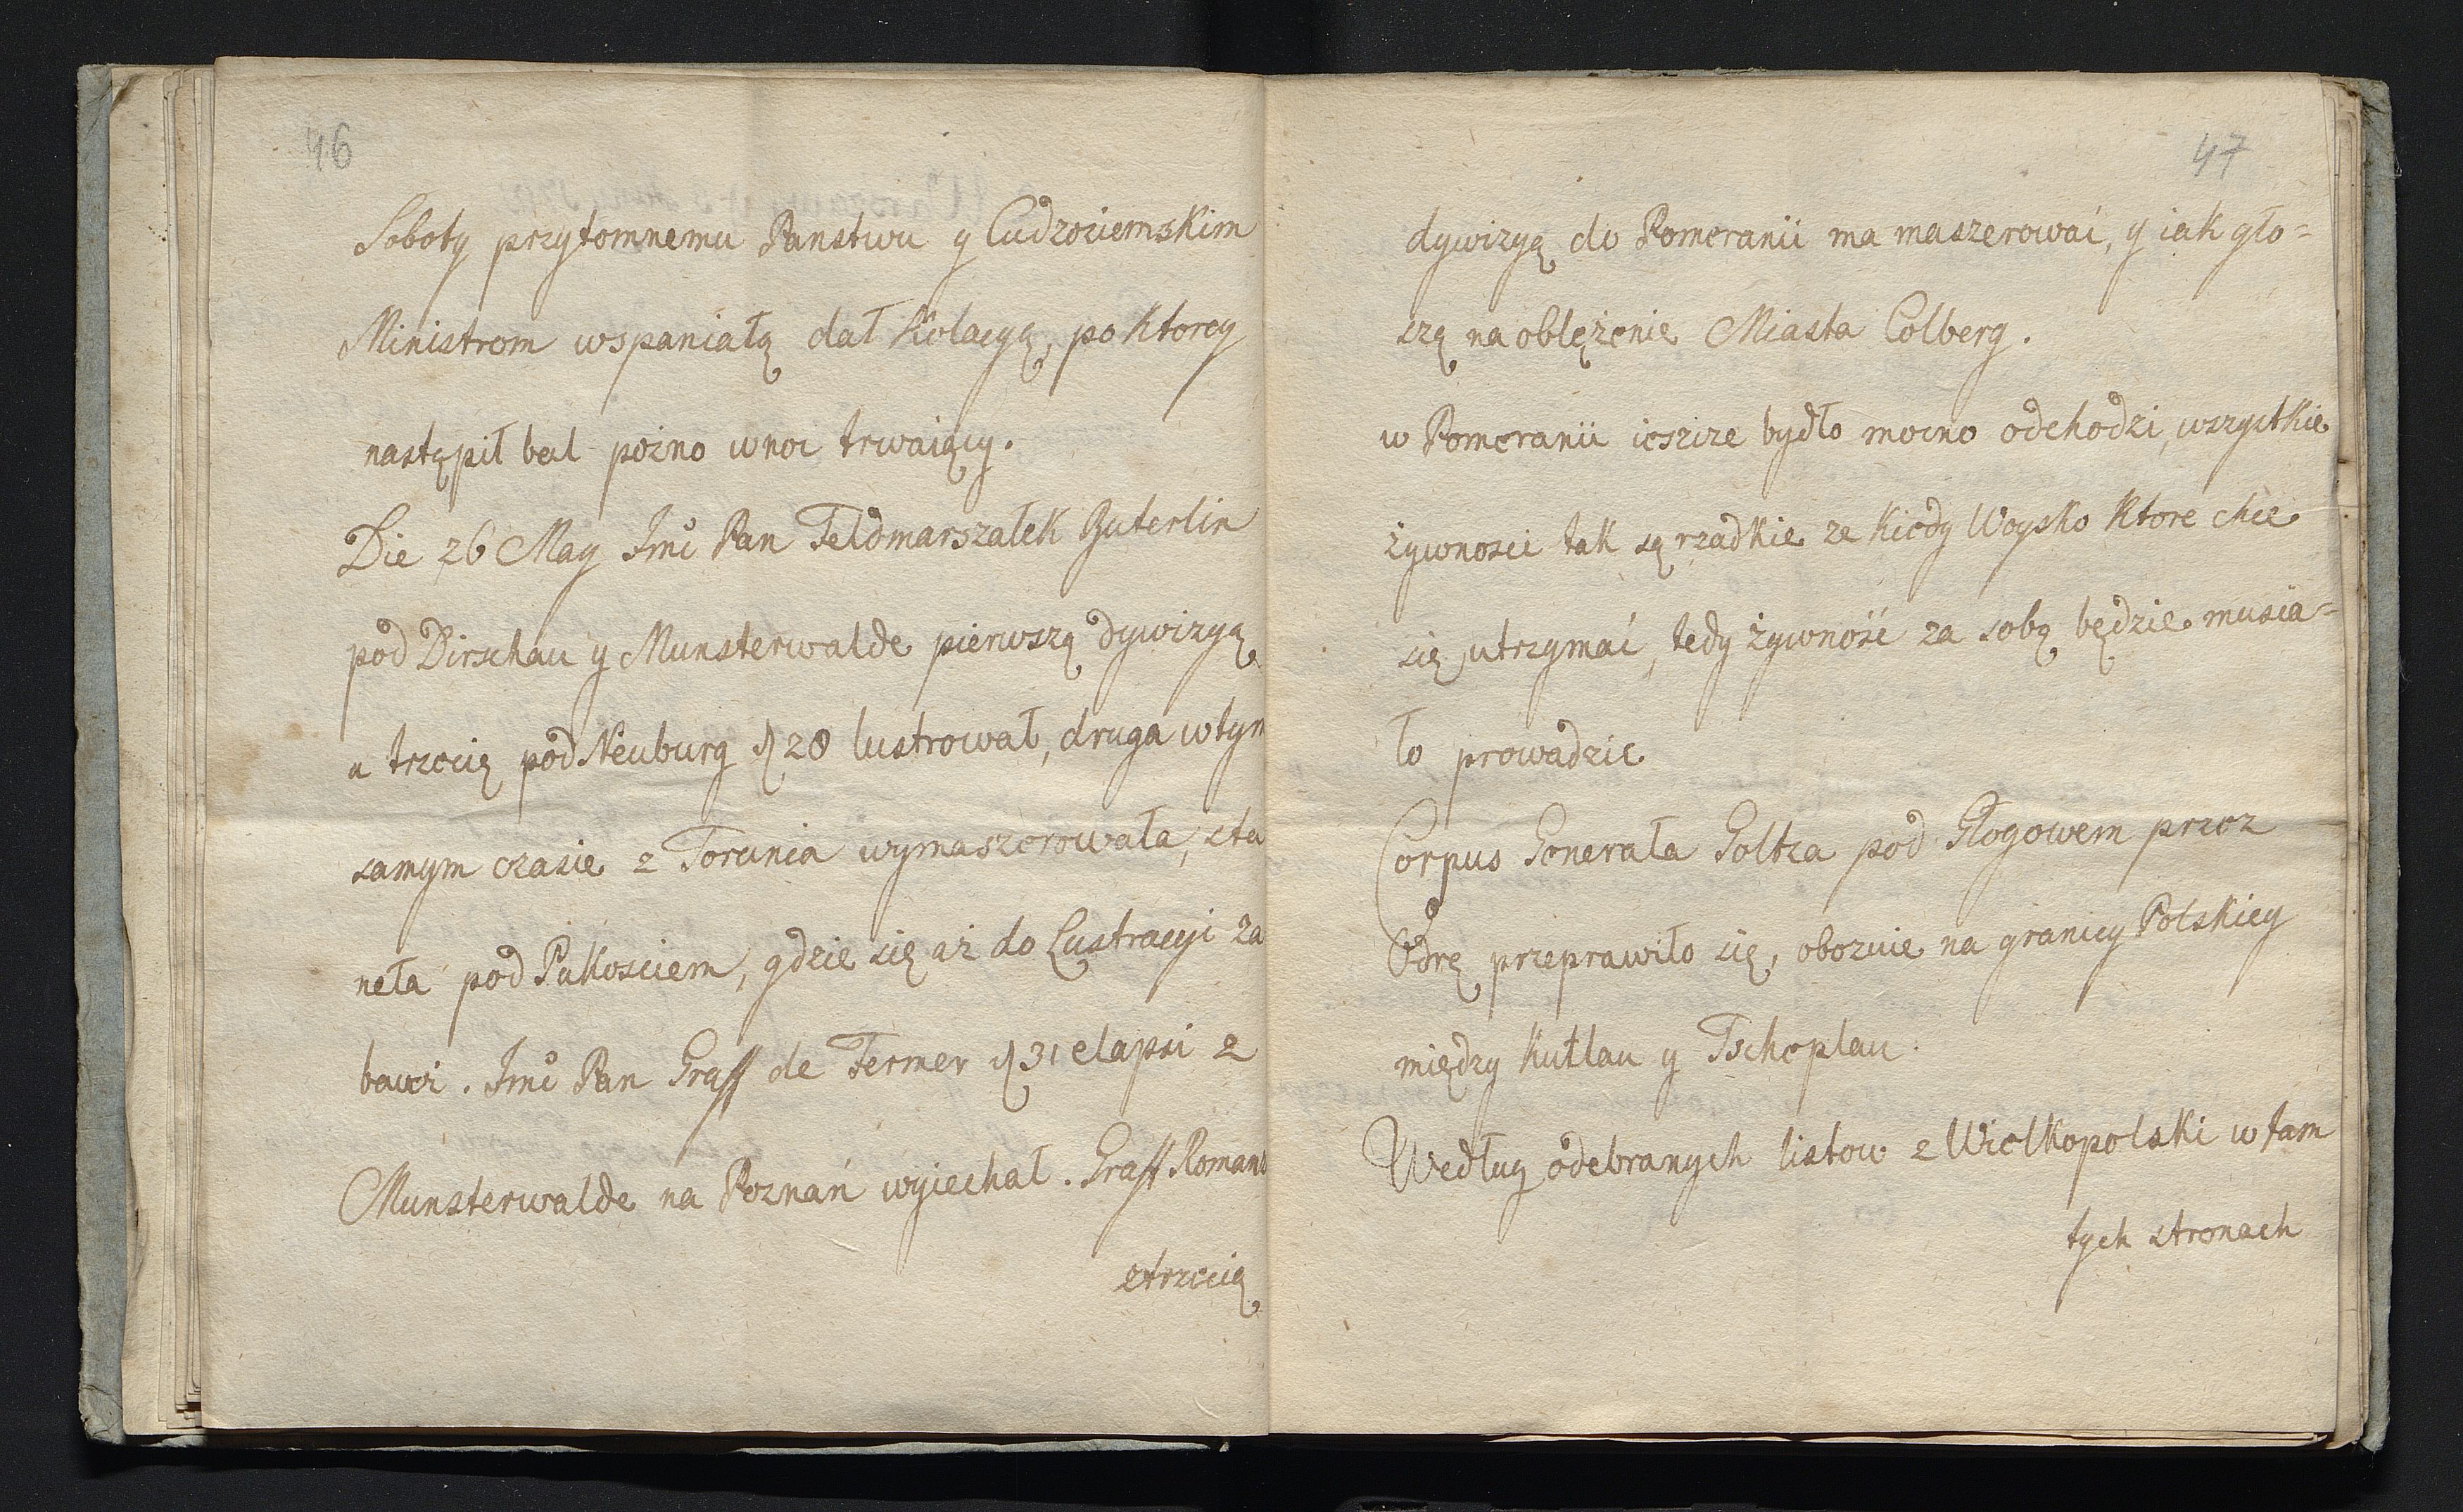 46
Soboty przytomnemu Panstwu y Cudzoziemskim
Ministrom wspaniałą dał Kolacyą, po ktorey
nastąpił bal pozno w noc trwaiący.
Die 26 May Jmć Pan Feldmarszałek Buterlin
pod Dirschau y Munsterwalde pierwszą dywizyą
a trzecią pod Neuburg d 28 lustrował, druga w tym
samym czasie z Torunia wymaszerowała, sta
neła pod Pakosciem, gdzie się aż do Lustracyi za
bawi. Jmć Pan Graff de Fermer d 31 elapsi z
Munsterwalde na Poznań wyiechał. Graff Roman
z trzecią
47
dywizyą do Pomeranii ma maszerować, y iak gło=
szą na oblężenie Miasta Colberg.
w Pomeranii ieszcze bydło mocno odchodzi, wszystkie
żywnosci tak są rzadkie ze kiedy Woysko ktore chce
się utrzymać, tedy żywność za sobą będzie musia=
ło prowadzic
Corpus Generała Goltza pod Głogowem przez
Odrę przeprawiło się, obozuie na granicy Polskiey
między Kutlau y Tscheplau.
Według odebranych listow z Wielkopolski w tam
tych stronach